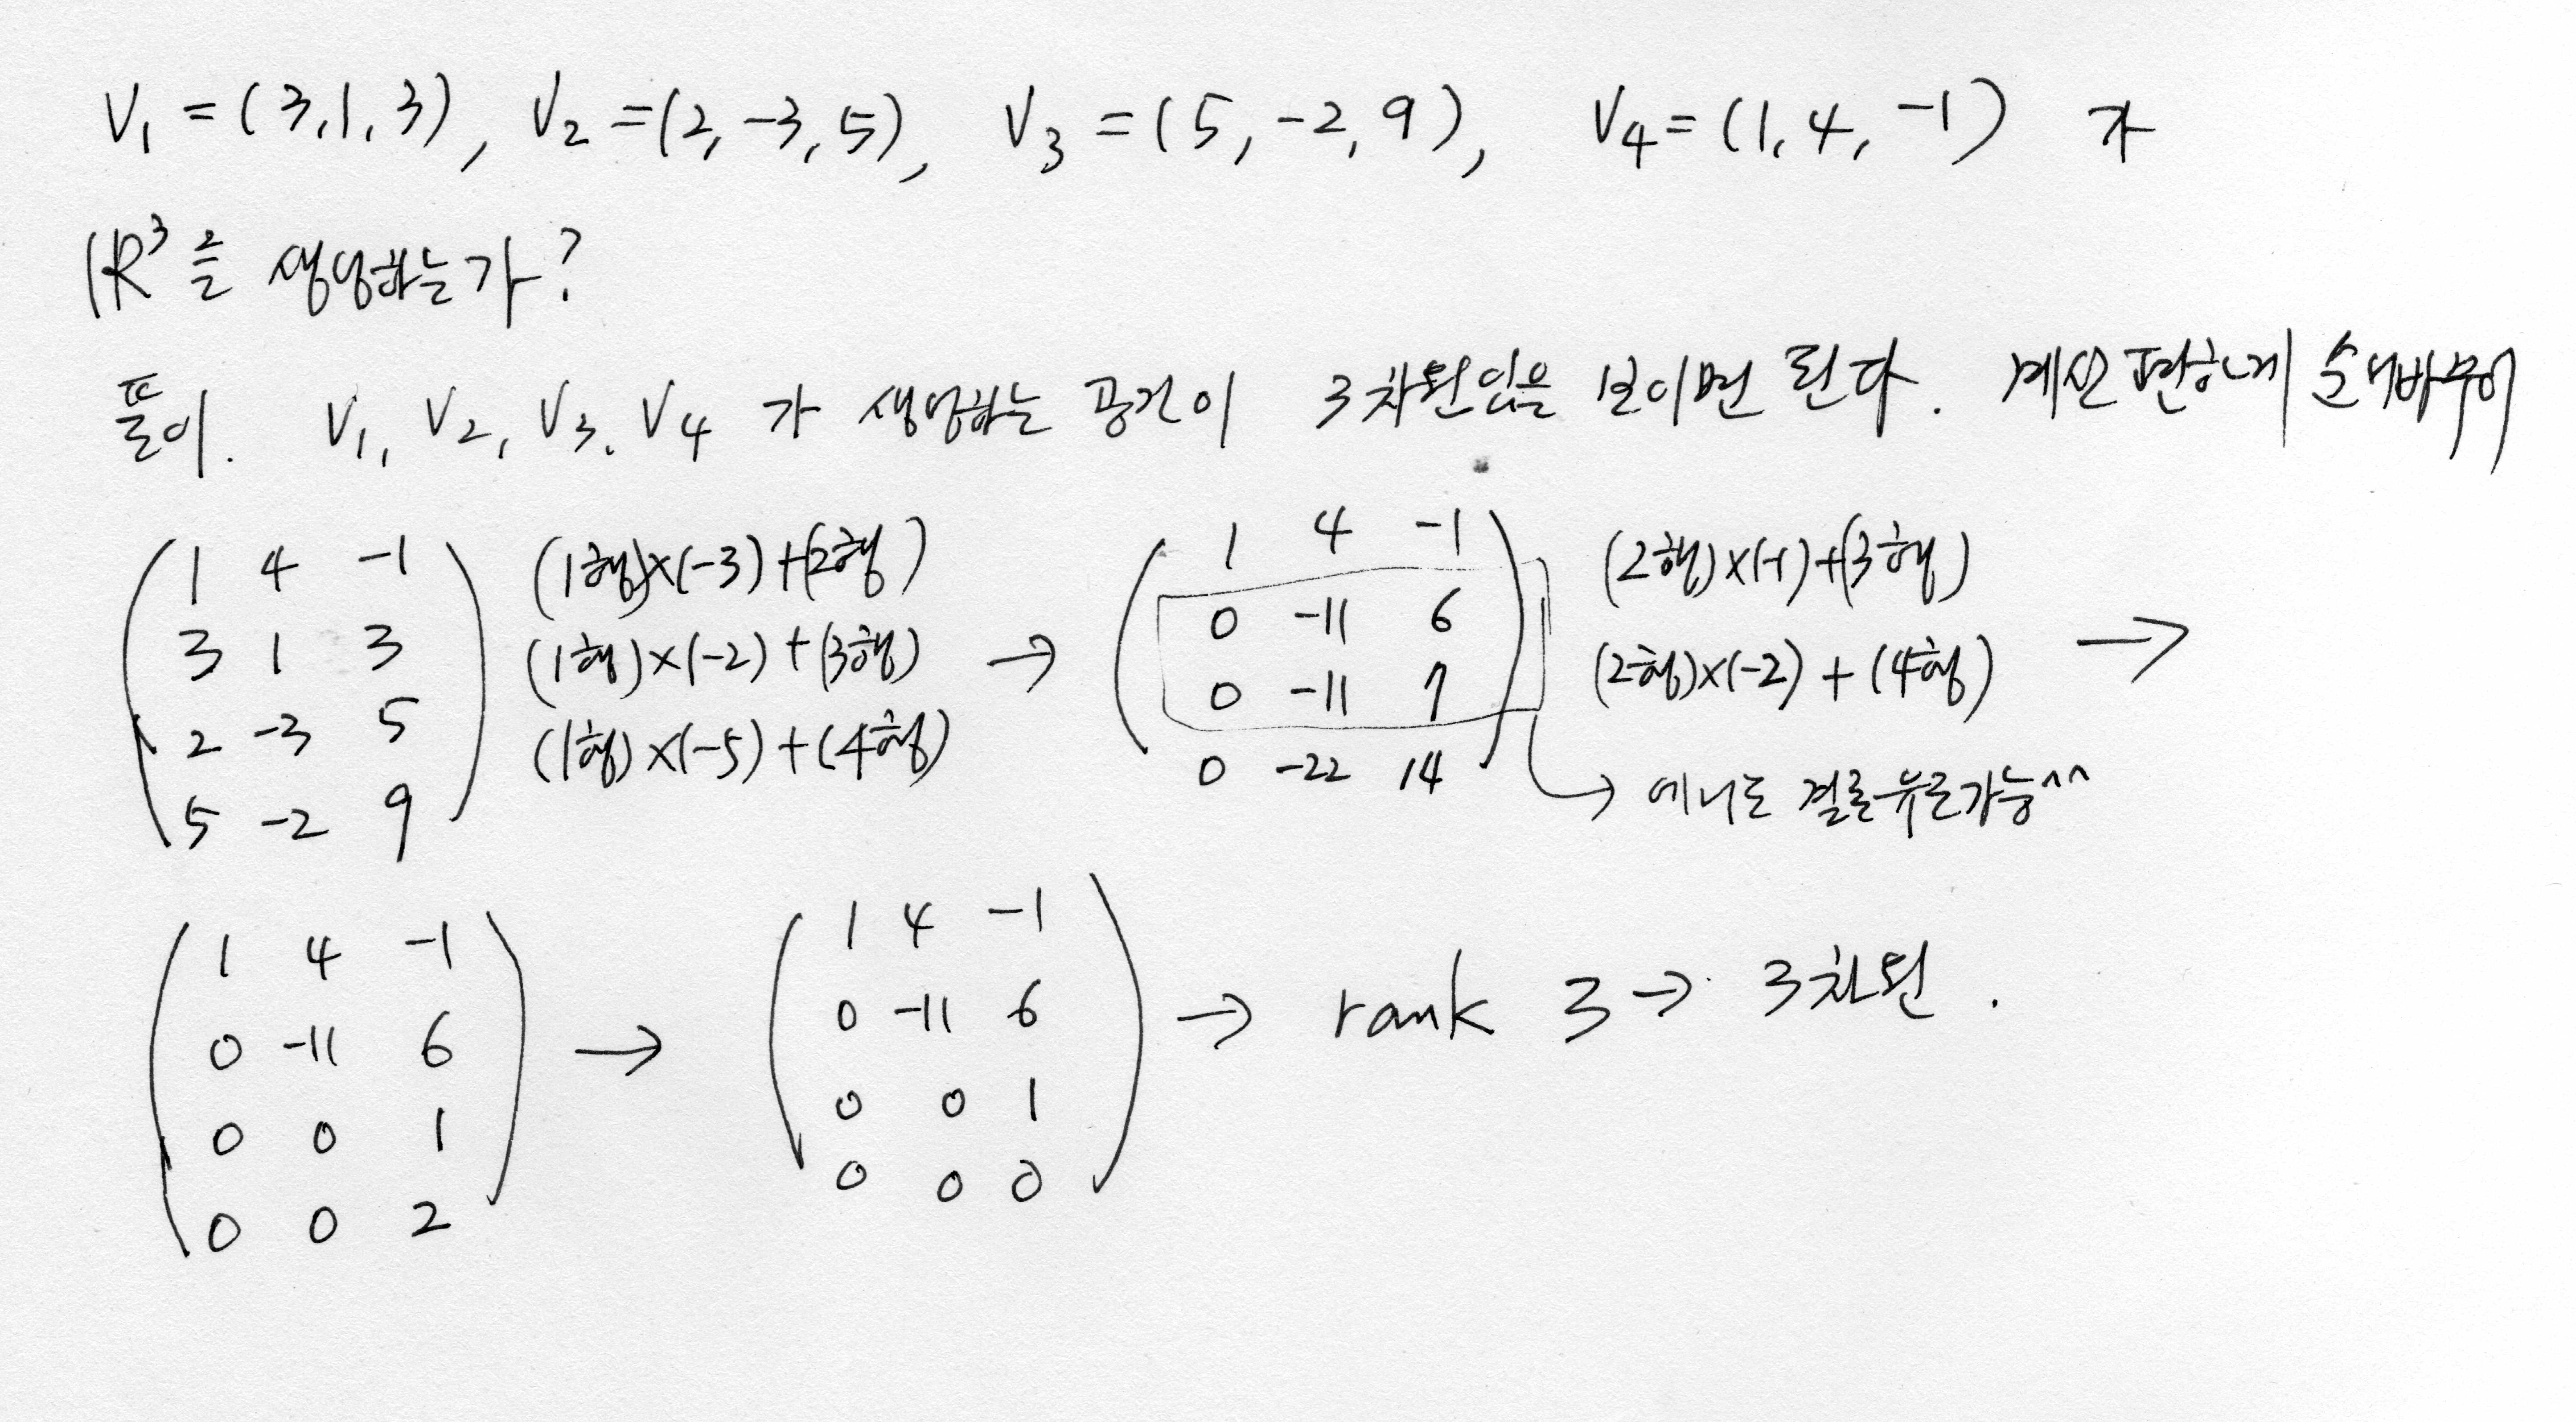 V₁ = (3,1,3), V₂ = (2,-3,5), V₃ = (5,-2,9), V₄ = (1,4,-1) 가
ℝ³를 생성하는가?
풀이. V₁, V₂, V₃, V₄ 가 생성하는 공간이 3차원임을 보이면 된다. 계산 편하게 순서바꾸어
1 4 -1 (1행)×(-3)+(2행)
3 1 3 (1행)×(-2)+(3행)
2 -3 5 (1행)×(-5)+(4행)
5 -2 9
→
1 4 -1 (2행)×(-1)+(3행)
0 -11 6 (2행)×(-2)+(4행) →
0 -11 7
0 -22 14 → 결론유도가능^^
1 4 -1
0 -11 6
0 0 1
0 0 2
→
1 4 -1
0 -11 6
0 0 1
0 0 0
→ rank 3 → 3차원.